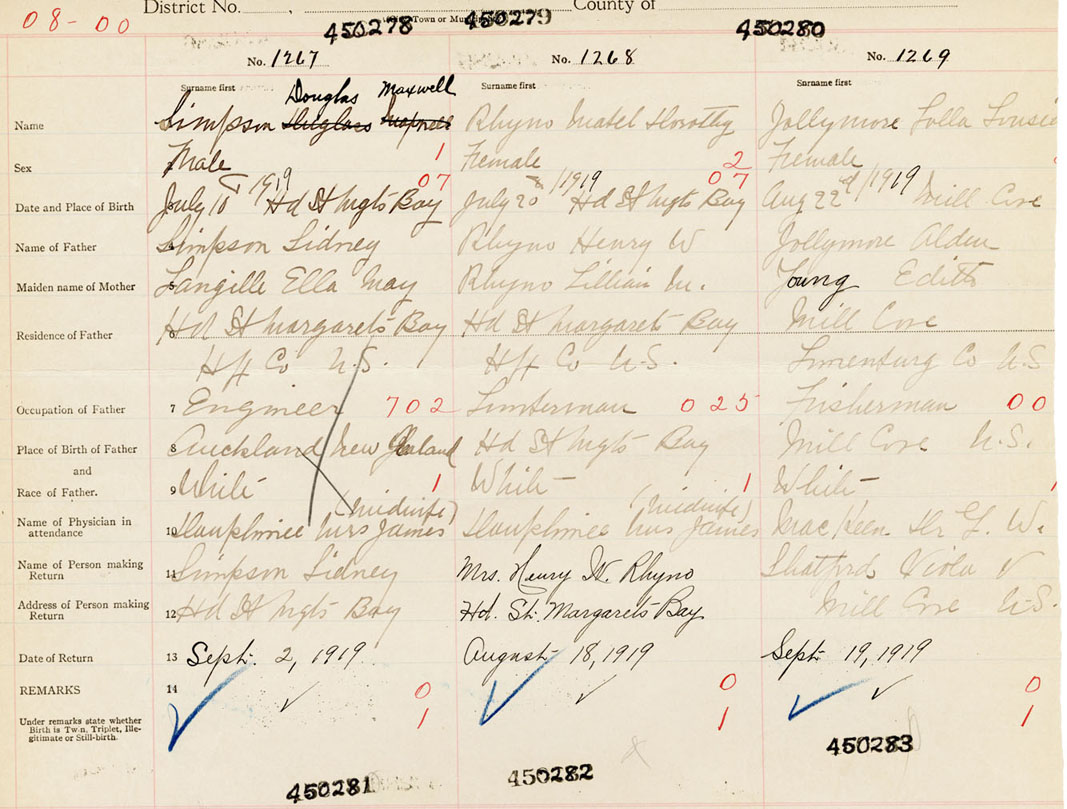 District No. County of
08-00 450278 City, Town or Mun 450279 450280
No. 1267 No. 1268 No. 1269
Surname first Surname first Surname first
Douglas Maxwell
Name Simpson Rhyno Mabel Dorothy Jollymore Lolla
Sex Male 1 Female 2 Female
1919 07 1919 07 1919
Date and Place of Birth July 18 Hd St Mgts Bay July 20 Hd St Mgts Bay Aug 22 Mill Cove
Name of Father Simpson Sidney Rhyno Henry W Jollymore Alden
Maiden name of Mother 5 Langille Ella May Rhyno Lillian M. Young Edith
Residence of Father 6 Hd St Margarets Bay Hd St Margarets Bay Mill Cove
Hfx Co N.S. Hfx Co N.S. Lunenburg Co N.S
Occupation of Father 7 Engineer 702 Lumberman 025 Fisherman 00
Place of Birth of Father 8 Auckland New Zealand Hd St Mgts Bay Mill Cove N.S.
and
Race of Father. 9 White 1 White 1 White 1
(midwife) (midwife)
Name of Physician in
attendance 10 Mrs James Mrs James
Name of Person making
Return 11 Simpson Sidney Mrs. Henry W. Rhyno Shatford Viola V
Address of Person making
Return 12 Hd St Mgts Bay Hd. St. Margarets Bay Mill Cove N.S.
Date of Return 13 Sept. 2, 1919 August 18, 1919 Sept 19, 1919
REMARKS 14 0 0 0
Under remarks state whether
Birth is Twin, Triplet, Ille-
gitimate or Still-birth. 1 1 1
450281 450282 450283